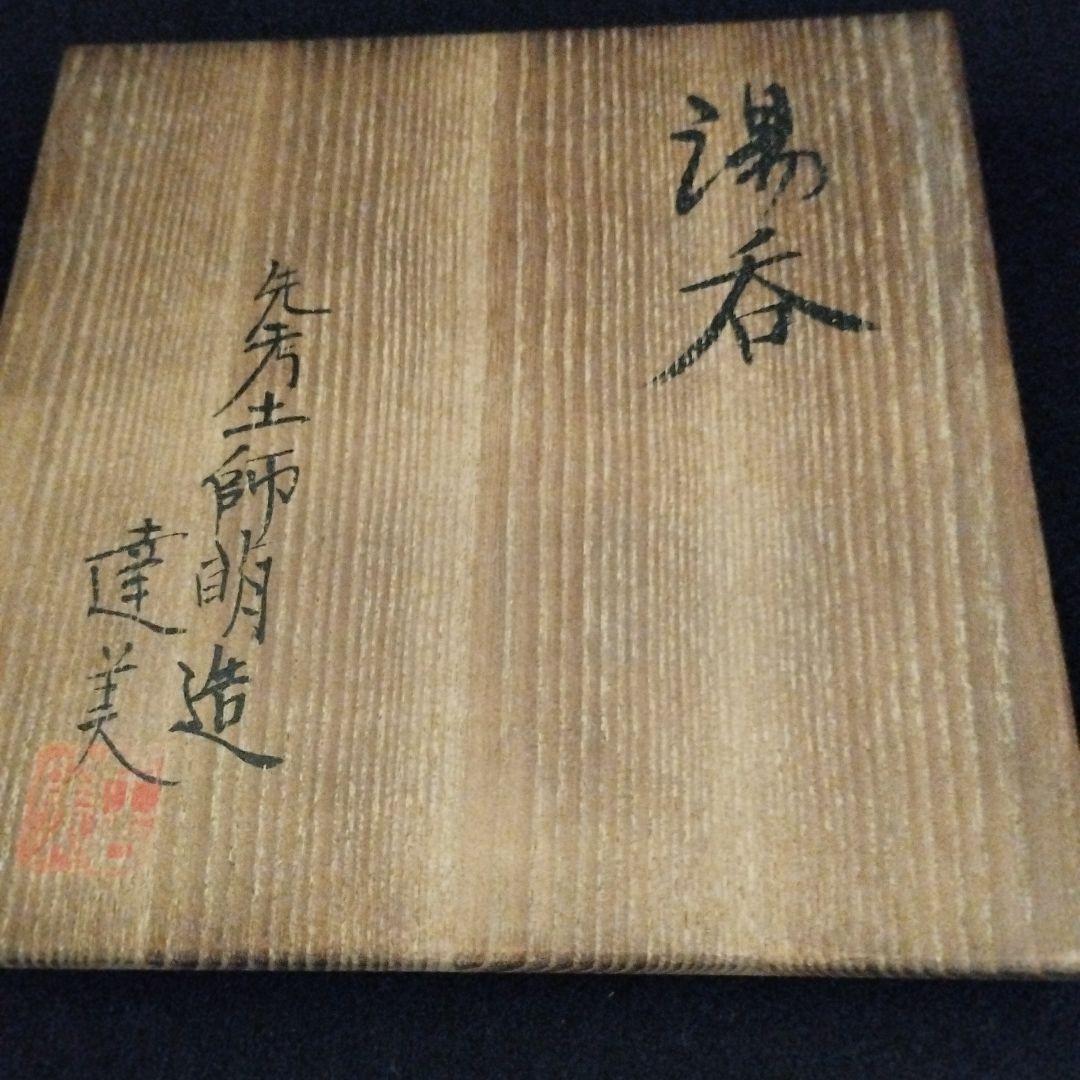 湯呑
先考土師萌造
達美